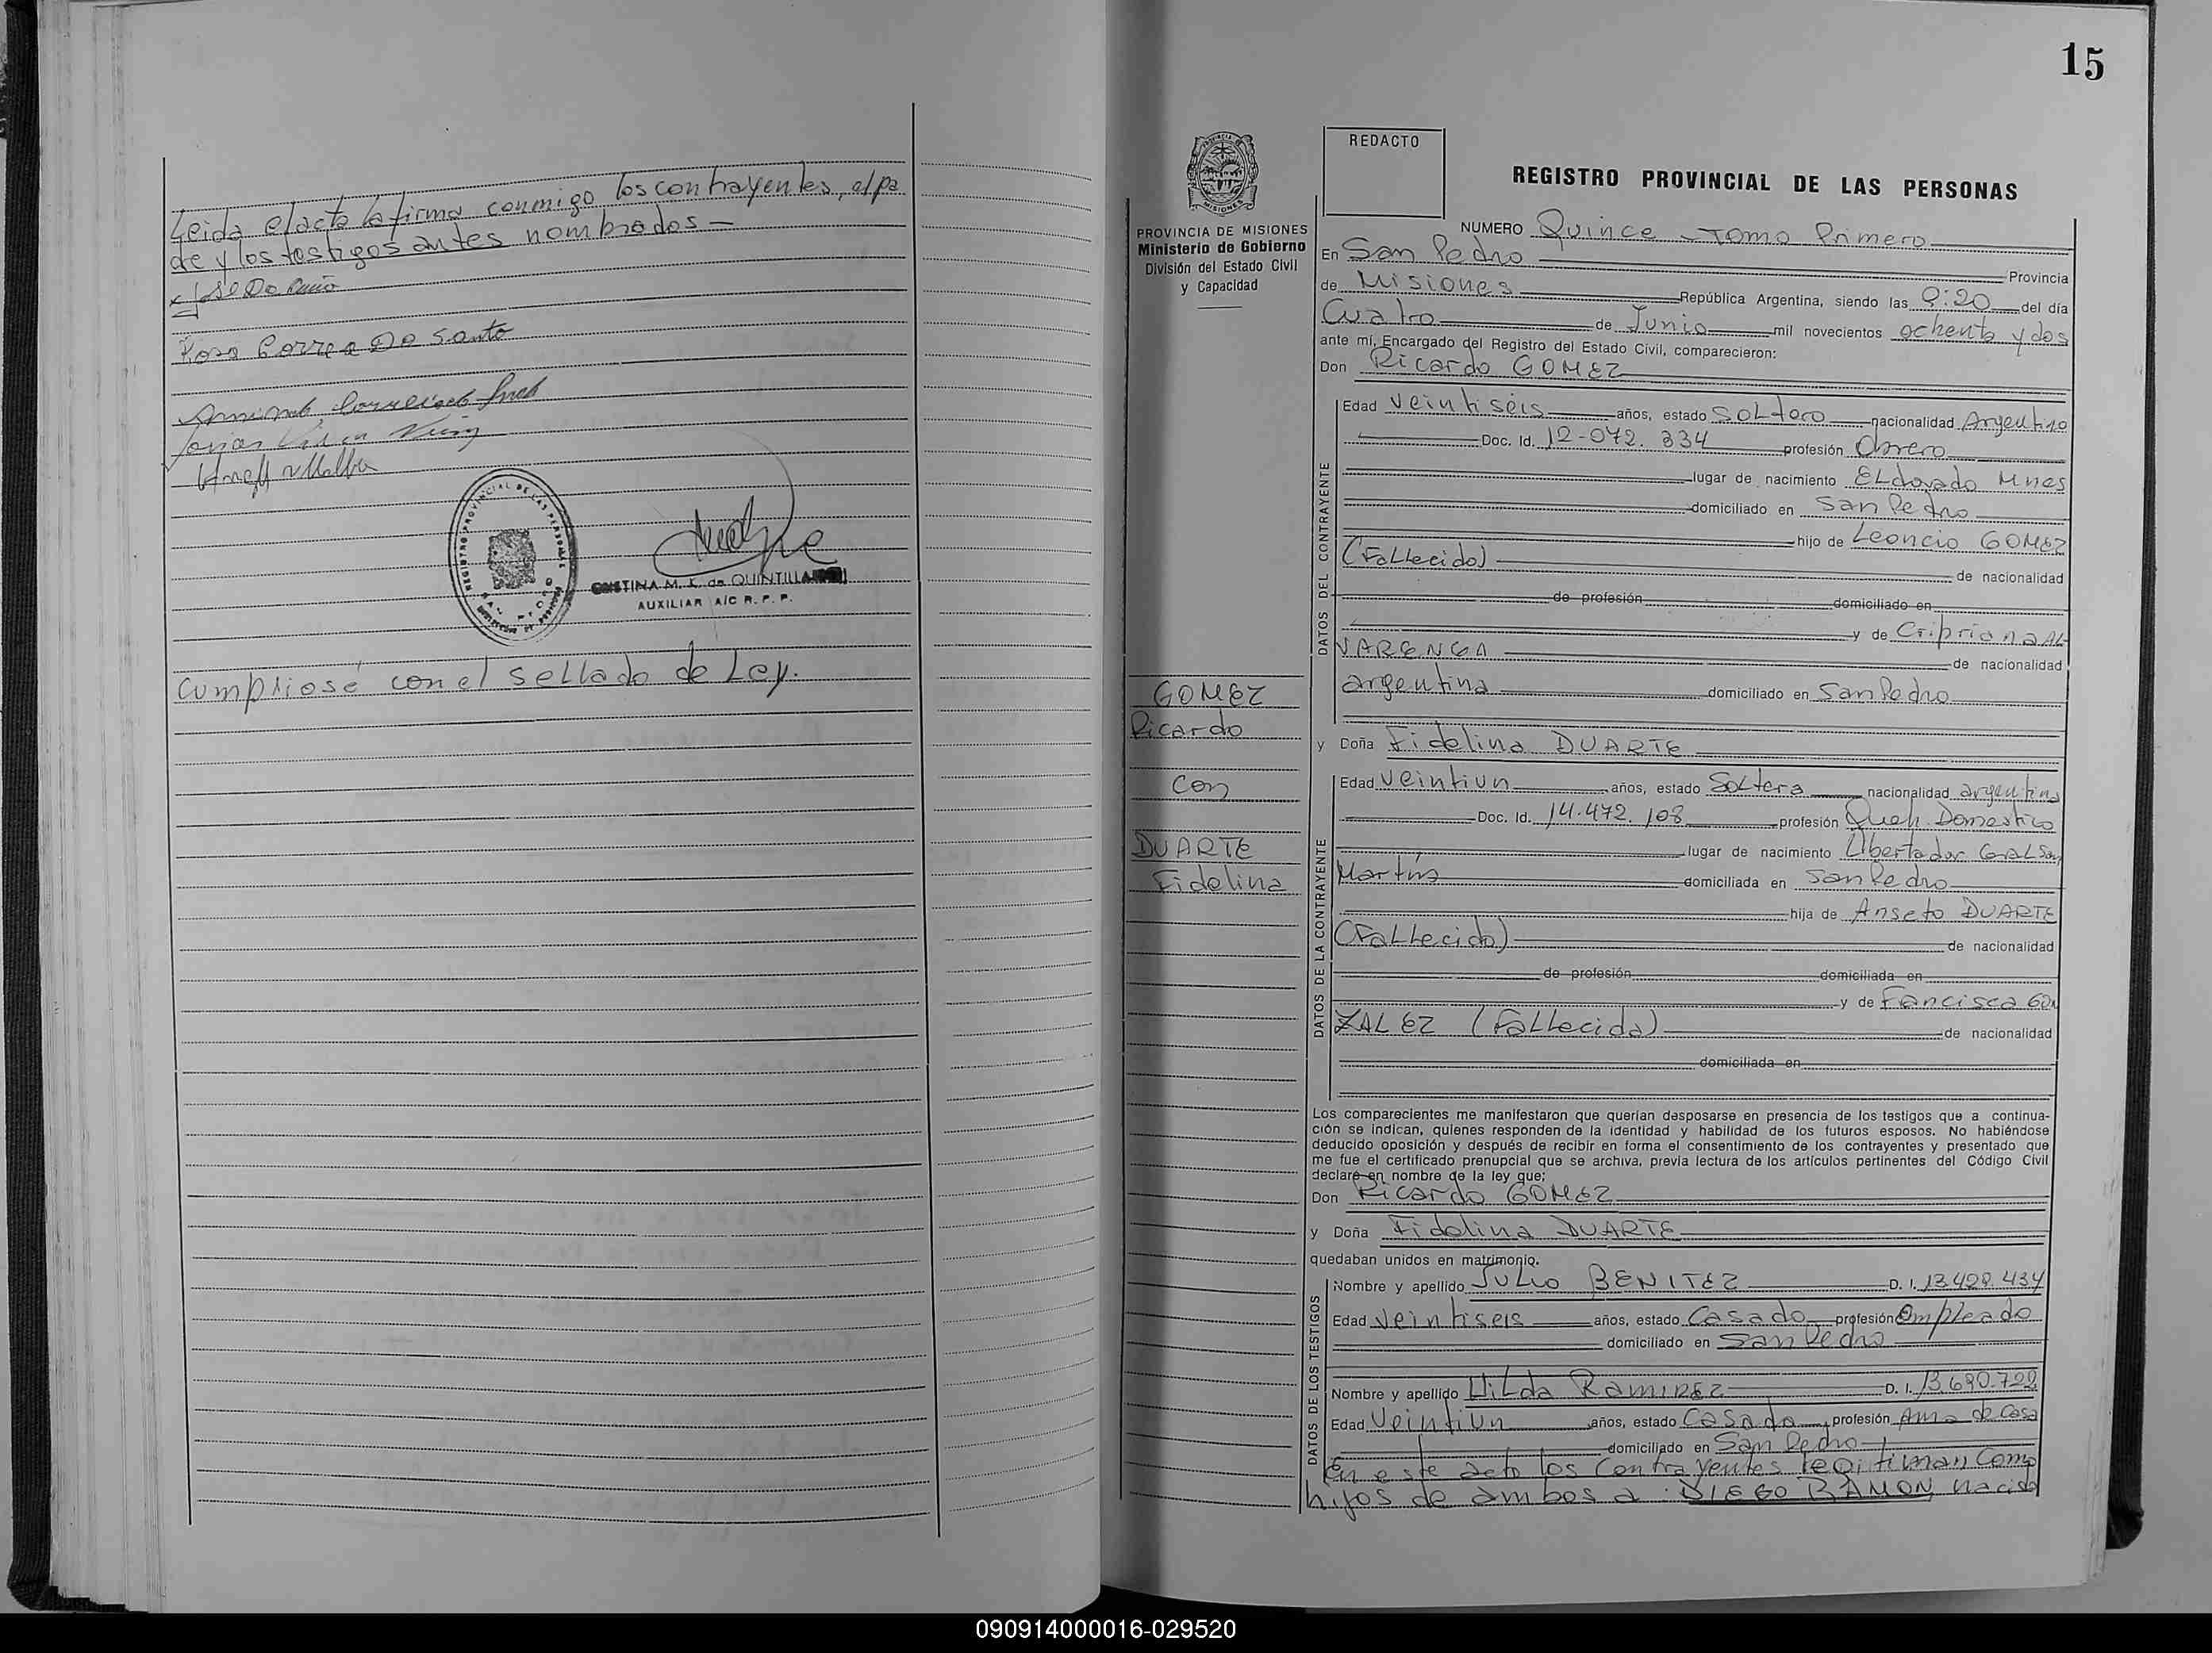 Leida el acta la firma conmigo los contrayentes, el pa
dre y los testigos antes nombrados —
Rosa Correa Do Santo
REGISTRO PROVINCIAL DE LAS PERSONAS
CRISTINA M. K. de QUINTILLA
AUXILIAR A/C R. P. P.
Cumpliosé con el sellado de Ley.
15
REDACTO
REGISTRO PROVINCIAL DE LAS PERSONAS
MISIONES
PROVINCIA DE MISIONES
Ministerio de Gobierno
División del Estado Civil
y Capacidad
GOMEZ
Ricardo
Con
DUARTE
Fidelina
NUMERO Quince - Tomo Primero
En San Pedro Provincia
de Misiones República Argentina, siendo las 9:20 del día
Cuatro de Junio mil novecientos ochenta y dos
ante mí, Encargado del Registro del Estado Civil, comparecieron:
Don Ricardo GOMEZ
DATOS DEL CONTRAYENTE
Edad veintiseis años, estado Soltero nacionalidad Argentino
Doc. Id. 12-072.334 profesión Obrero
lugar de nacimiento ELdorado Mnes
domiciliado en San Pedro
hijo de Leoncio GOMEZ
(FaLLecido) de nacionalidad
de profesión domiciliado en
y de Cripriana AL
VARENGA de nacionalidad
argentina domiciliado en San Pedro
y Doña Fidelina DUARTE
DATOS DE LA CONTRAYENTE
Edad Veintiun años, estado Soltera nacionalidad argentina
Doc. Id. 14.472.108 profesión Queh. Domestico
lugar de nacimiento Libertador GraL San
Martín domiciliada en San Pedro
hija de Anseto DUARTE
(FaLLecido) de nacionalidad
de profesión domiciliada en
y de Francisca GON
ZALEZ (FaLLecida) de nacionalidad
domiciliada en
Los comparecientes me manifestaron que querían desposarse en presencia de los testigos que a continua-
ción se indican, quienes responden de la identidad y habilidad de los futuros esposos. No habiéndose
deducido oposición y después de recibir en forma el consentimiento de los contrayentes y presentado que
me fue el certificado prenupcial que se archiva, previa lectura de los artículos pertinentes del Código Civil
declaré en nombre de la ley que;
Don Ricardo GOMEZ
y Doña Fidelina DUARTE
quedaban unidos en matrimonio.
DATOS DE LOS TESTIGOS
Nombre y apellido Julio BENITEZ D. I. 13.428.434
Edad Veintiseis años, estado Casado profesión Empleado
domiciliado en San Pedro
Nombre y apellido HiLda RAMIREZ D. I. 13.690.728
Edad Veintiun años, estado Casada profesión Ama de Casa
domiciliado en San Pedro
En este acto los Contrayentes legitiman Como
hijos de ambos a: DIEGO RAMON, nacido
090914000016-029520